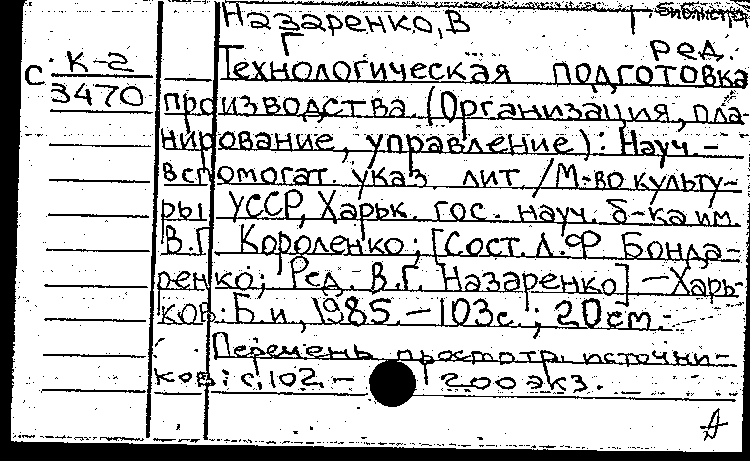 Библиотека
Назаренко, В
Г ред.
С К-2
3470
Технологическая подготовка
производства. (Организация, пла-
нирование, управление): Науч.-
вспомогат. указ. лит. /М-во культу-
ры УССР, Харьк. гос. науч. б-ка им.
В.Г. Короленко; [Сост. Л.Ф Бонда-
ренко; Ред. В.Г. Назаренко] —Харь-
ков: Б.и., 1985.—103с.; 20см.-
Перечень просмотр. источни-
ков: с.102.— 200 экз.